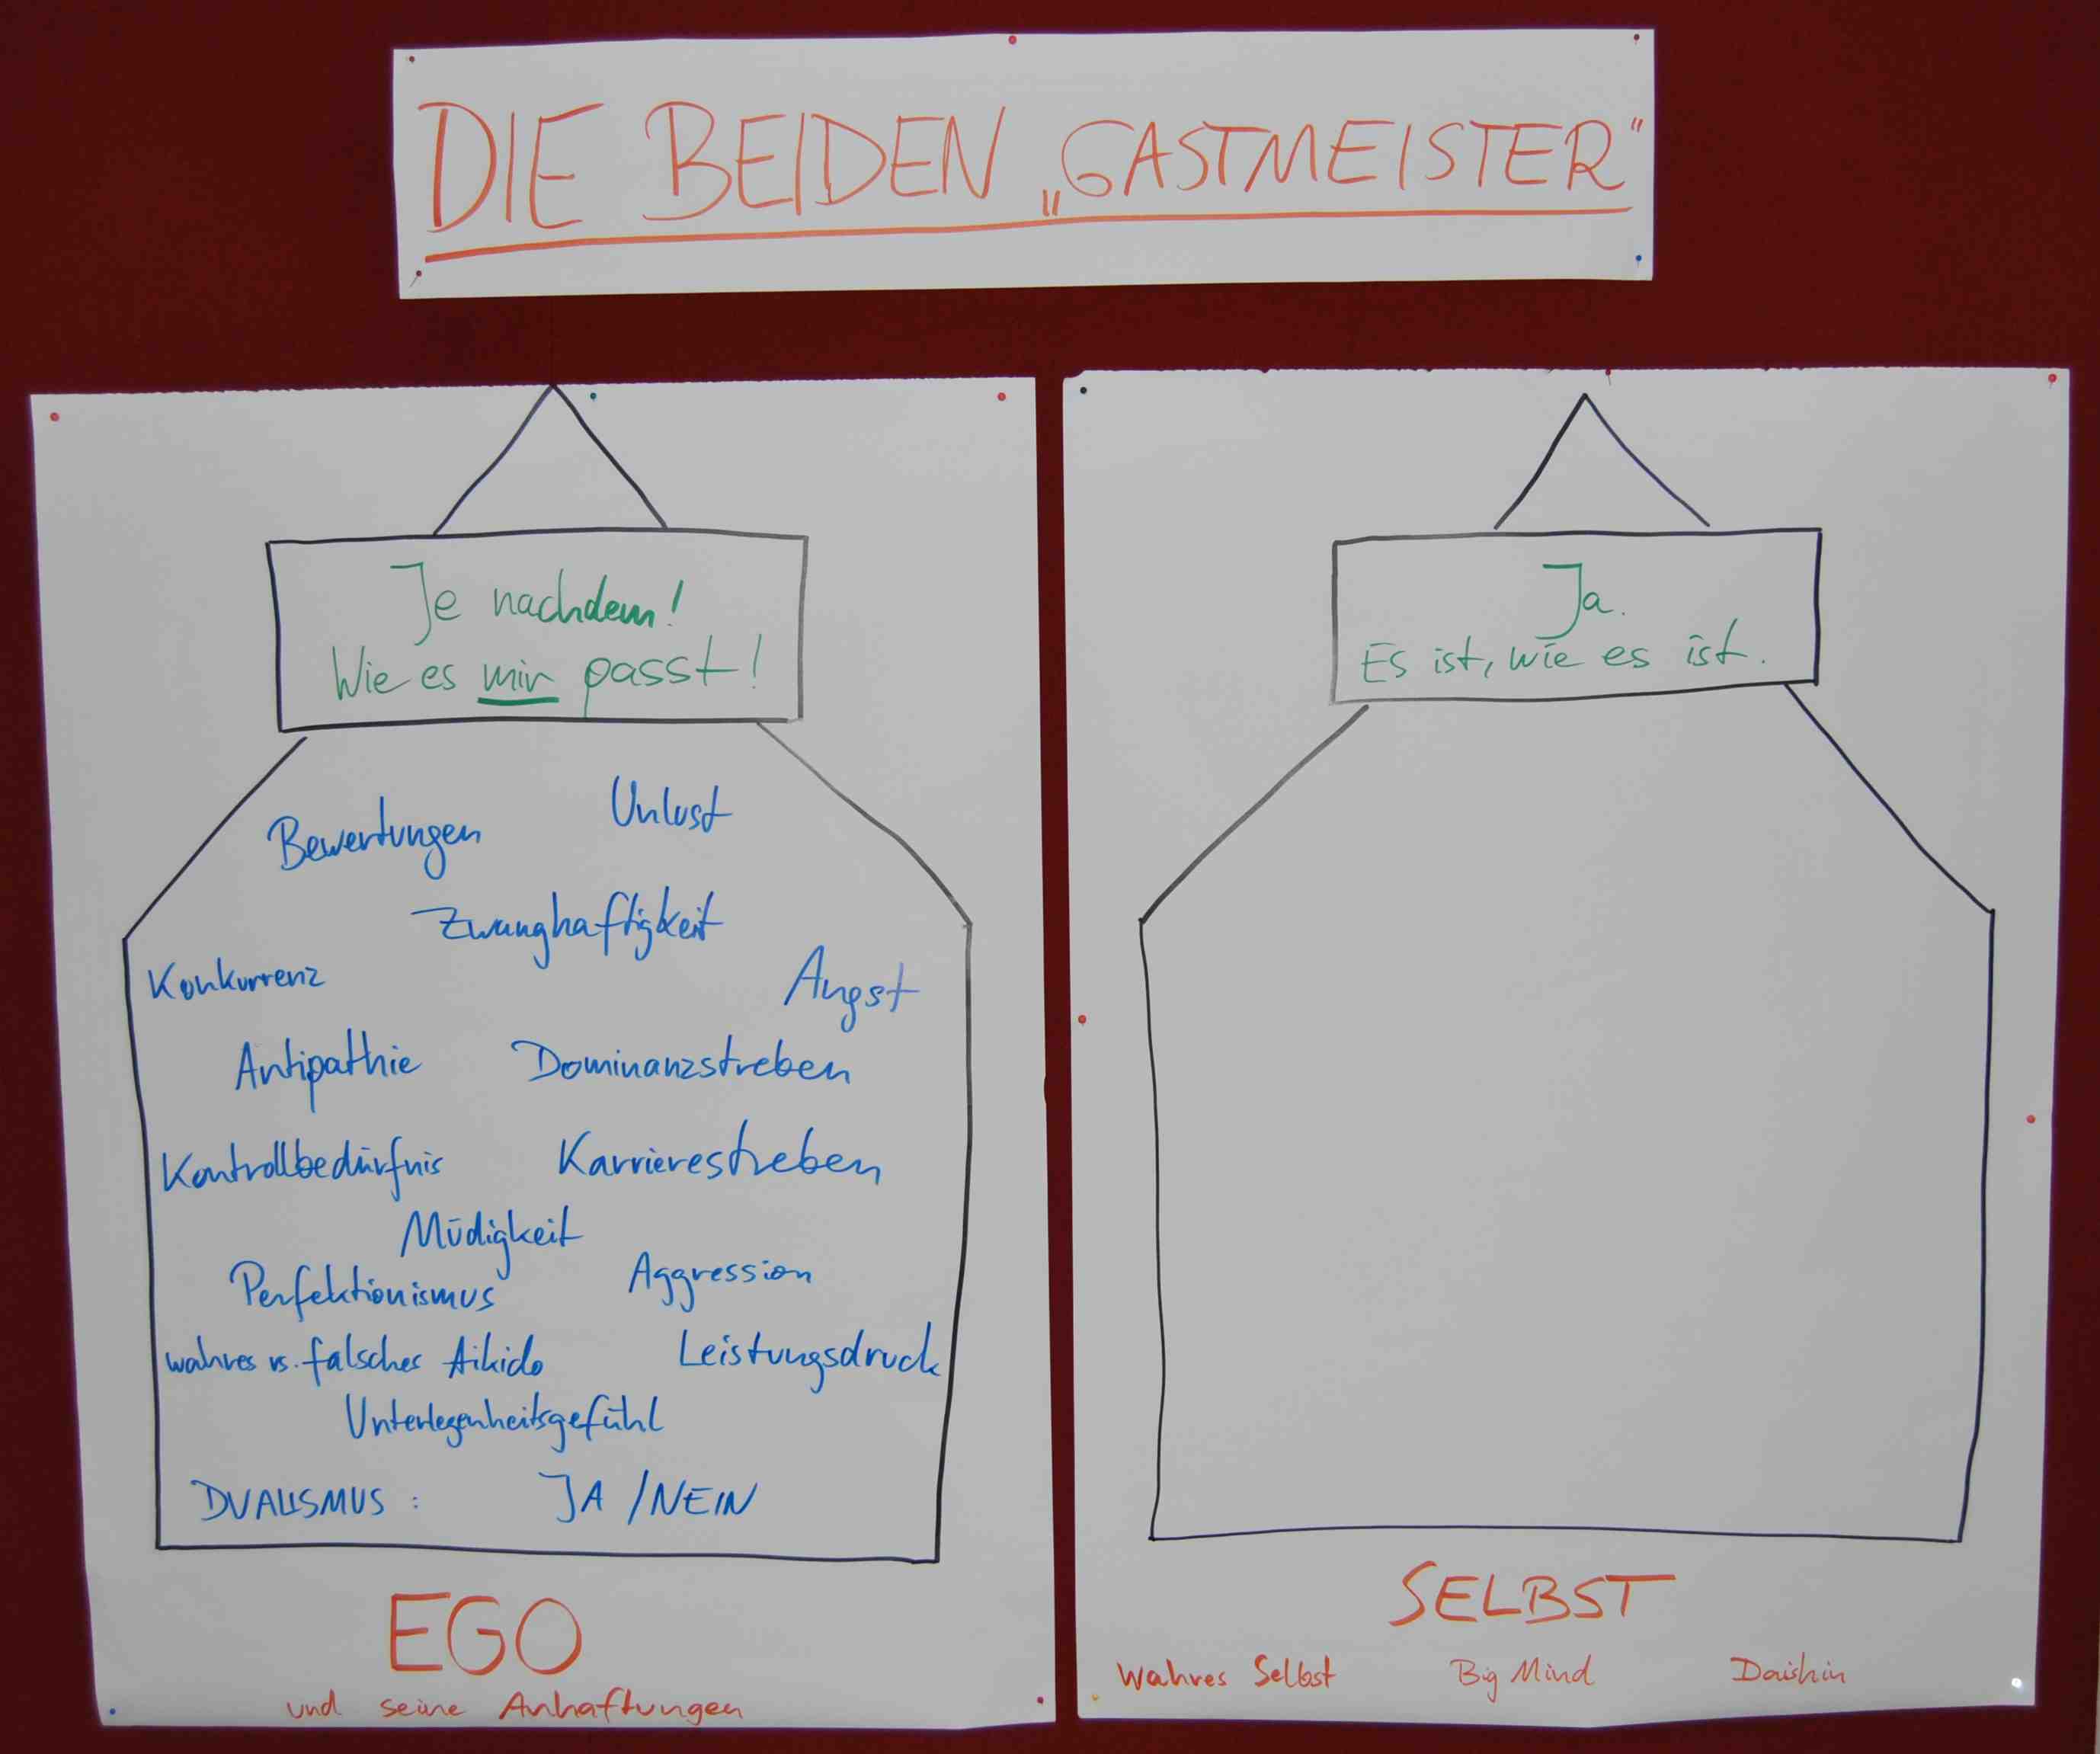 DIE BEIDEN „GASTMEISTER“
Je nachdem!
Wie es mir passt!
Bewertungen
Unlust
Zwanghaftigkeit
Konkurrenz
Angst
Antipathie
Dominanzstreben
Kontrollbedürfnis
Karrierestreben
Müdigkeit
Perfektionismus
Aggression
wahres vs. falsches Aikido
Leistungsdruck
Unterlegenheitsgefühl
DUALISMUS : JA / NEIN
EGO
und seine Anhaftungen
Ja.
Es ist, wie es ist.
SELBST
Wahres Selbst Big Mind Daishin